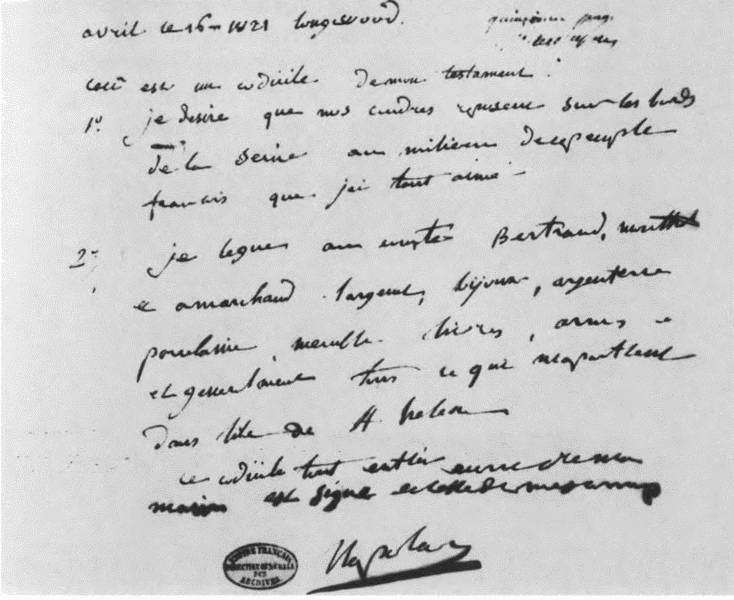 avril le 16 1821 longwood.
ceci est un codicile de mon testament.
1° je desire que mes cendres reposent sur les bords
de la Seine au milieu de ce peuple
francais que j'ai tant aimé
2° je legue au comte Bertrand,
et a marchand l'argent, bijoux, argenterie
porcelaine, meuble livres, armes
et generalement tous ce qui m'apartient
dans lile de St helene
ce codicile tout entier ecrit de ma
main est signé
EMPIRE FRANCAIS
DIRECTION GENERALE
DES
ARCHIVES
Napoleon